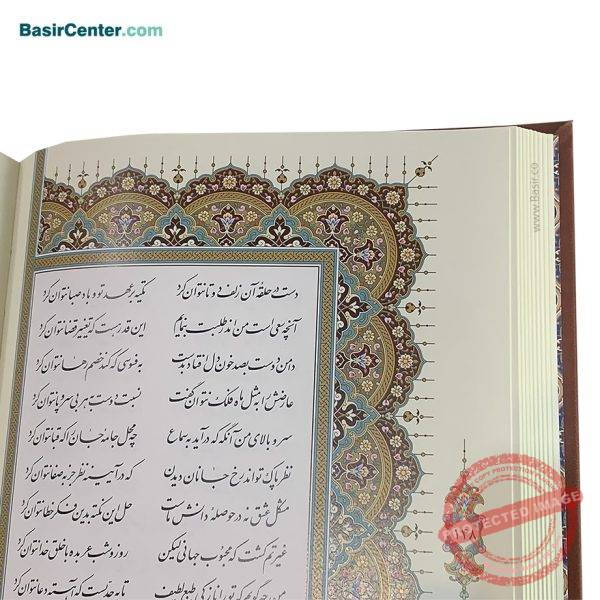 BasirCenter.com
دست در حلقه آن زلف دوتا نتوان کرد تکیه بر عهد تو و باد صبا نتوان کرد
آنچه سعی است من اندر طلبت بنمایم این قدر هست که تغییر قضا نتوان کرد
دامن دوست بصد خون دل افتاد بدست به فسوسی که کند خصم رها نتوان کرد
عارضش را بمثل ماه فلک نتوان گفت نسبت دوست بهر بی سر و پا نتوان کرد
سرو بالای من آنگه که درآید به سماع چه محل جامه جان را که قبا نتوان کرد
نظر پاک تواند رخ جانان دیدن که در آیینه نظر جز به صفا نتوان کرد
مشکل عشق نه در حوصله دانش ماست حل این نکته بدین فکر خطا نتوان کرد
غیرتم کشت که محبوب جهانی لیکن روز و شب عربده با خلق خدا نتوان کرد
من چه گویم که تو را نازکی طبع لطیف تا به حدیست که آهسته دعا نتوان کرد
www.Basir.co
COPY PROTECTION
PROTECTED IMAGE